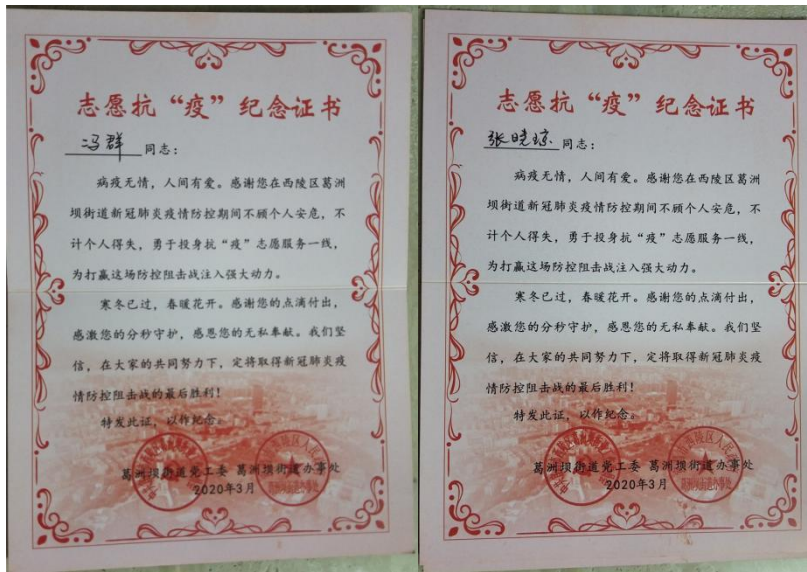 志愿抗“疫”纪念证书
冯群 同志：
病疫无情，人间有爱。感谢您在西陵区葛洲
坝街道新冠肺炎疫情防控期间不顾个人安危，不
计个人得失，勇于投身抗“疫”志愿服务一线，
为打赢这场防控阻击战注入强大动力。
寒冬已过，春暖花开。感谢您的点滴付出，
感激您的分秒守护，感恩您的无私奉献。我们坚
信，在大家的共同努力下，定将取得新冠肺炎疫
情防控阻击战的最后胜利！
特发此证，以作纪念。
葛洲坝街道党工委 葛洲坝街道办事处
2020年3月
志愿抗“疫”纪念证书
张晓琼 同志：
病疫无情，人间有爱。感谢您在西陵区葛洲
坝街道新冠肺炎疫情防控期间不顾个人安危，不
计个人得失，勇于投身抗“疫”志愿服务一线，
为打赢这场防控阻击战注入强大动力。
寒冬已过，春暖花开。感谢您的点滴付出，
感激您的分秒守护，感恩您的无私奉献。我们坚
信，在大家的共同努力下，定将取得新冠肺炎疫
情防控阻击战的最后胜利！
特发此证，以作纪念。
葛洲坝街道党工委 葛洲坝街道办事处
2020年3月